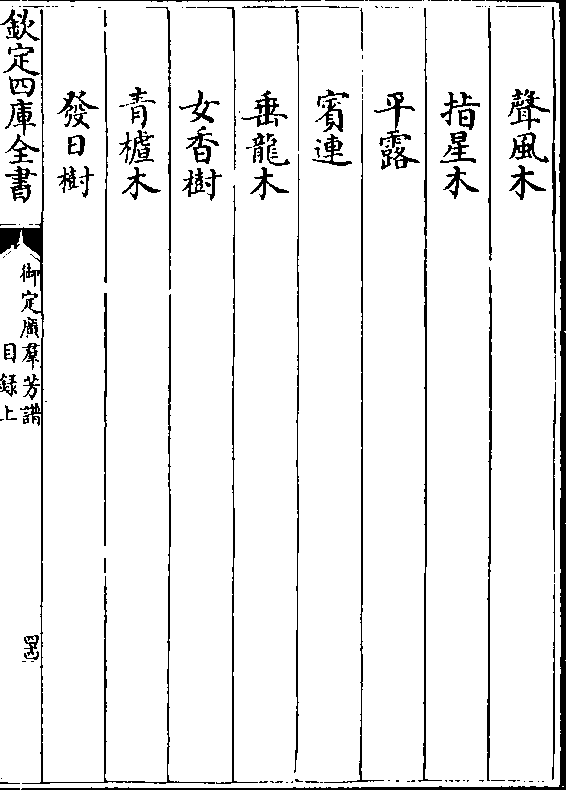 聲風木
指星木
平露
賓連
垂龍木
女香樹
青櫨木
發日樹
欽定四庫全書
御定廣羣芳譜
目錄上